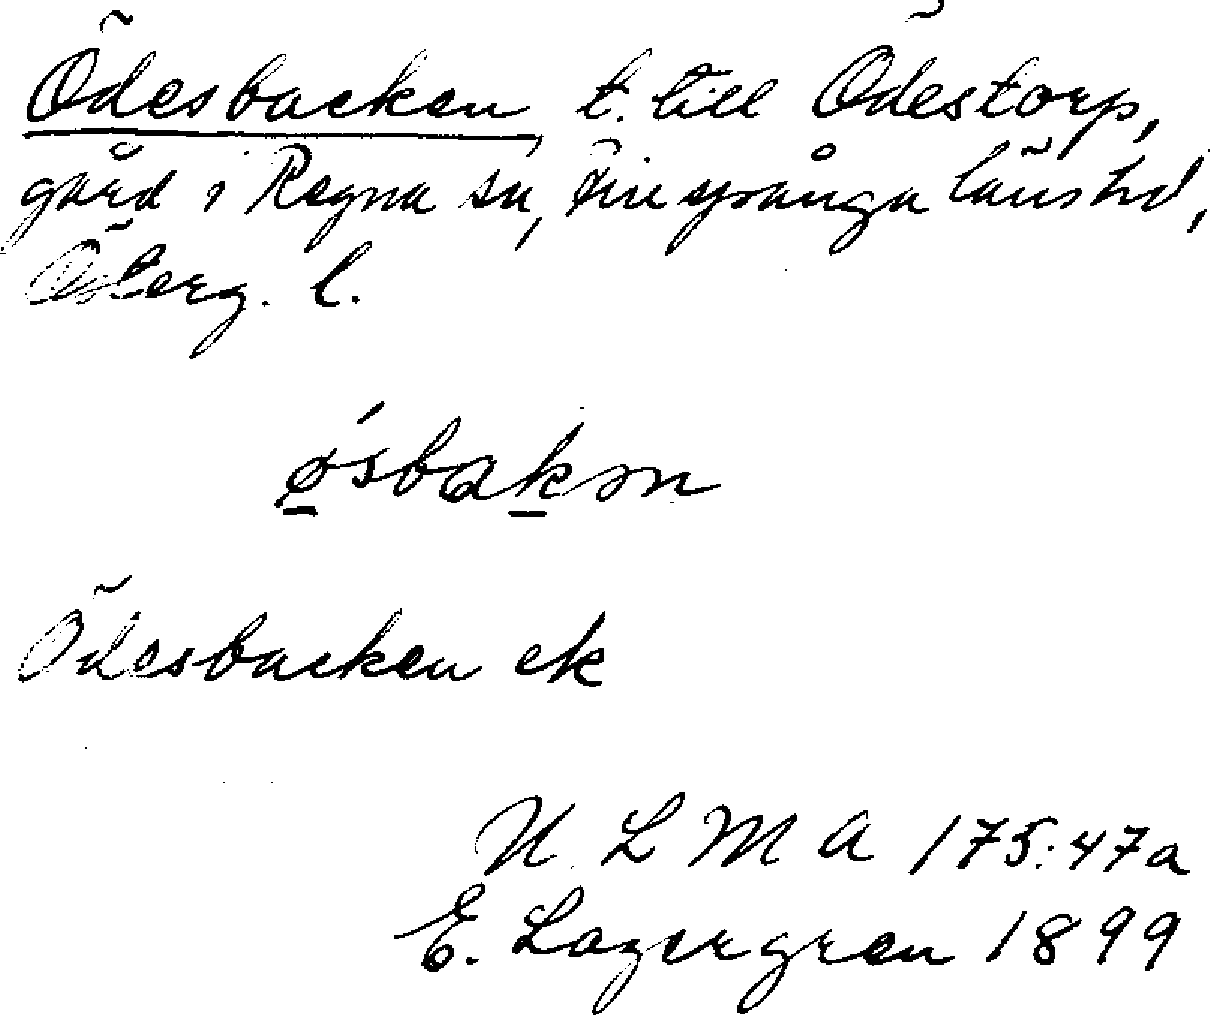 Ödesbacken, t. till Ödestorp,
gård i Regna sn, Finspånga länshd,
Österg. l.
ǿsbakən
Ödesbacken ek
U L M A 175:47a
E. Lagergren 1899